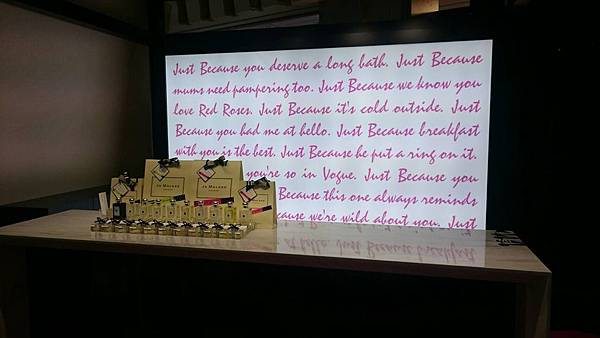 Just Because you deserve a long bath. Just Because
mums need pampering too. Just Because we know you
love Red Roses. Just Because it's cold outside. Just
Because you had me at hello. Just Because breakfast
with you is the best. Just Because he put a ring on it.
you're so in Vogue. Just Because you
Because this one always reminds
cause we're wild about you. Just
Jo Malone
Jo Malone